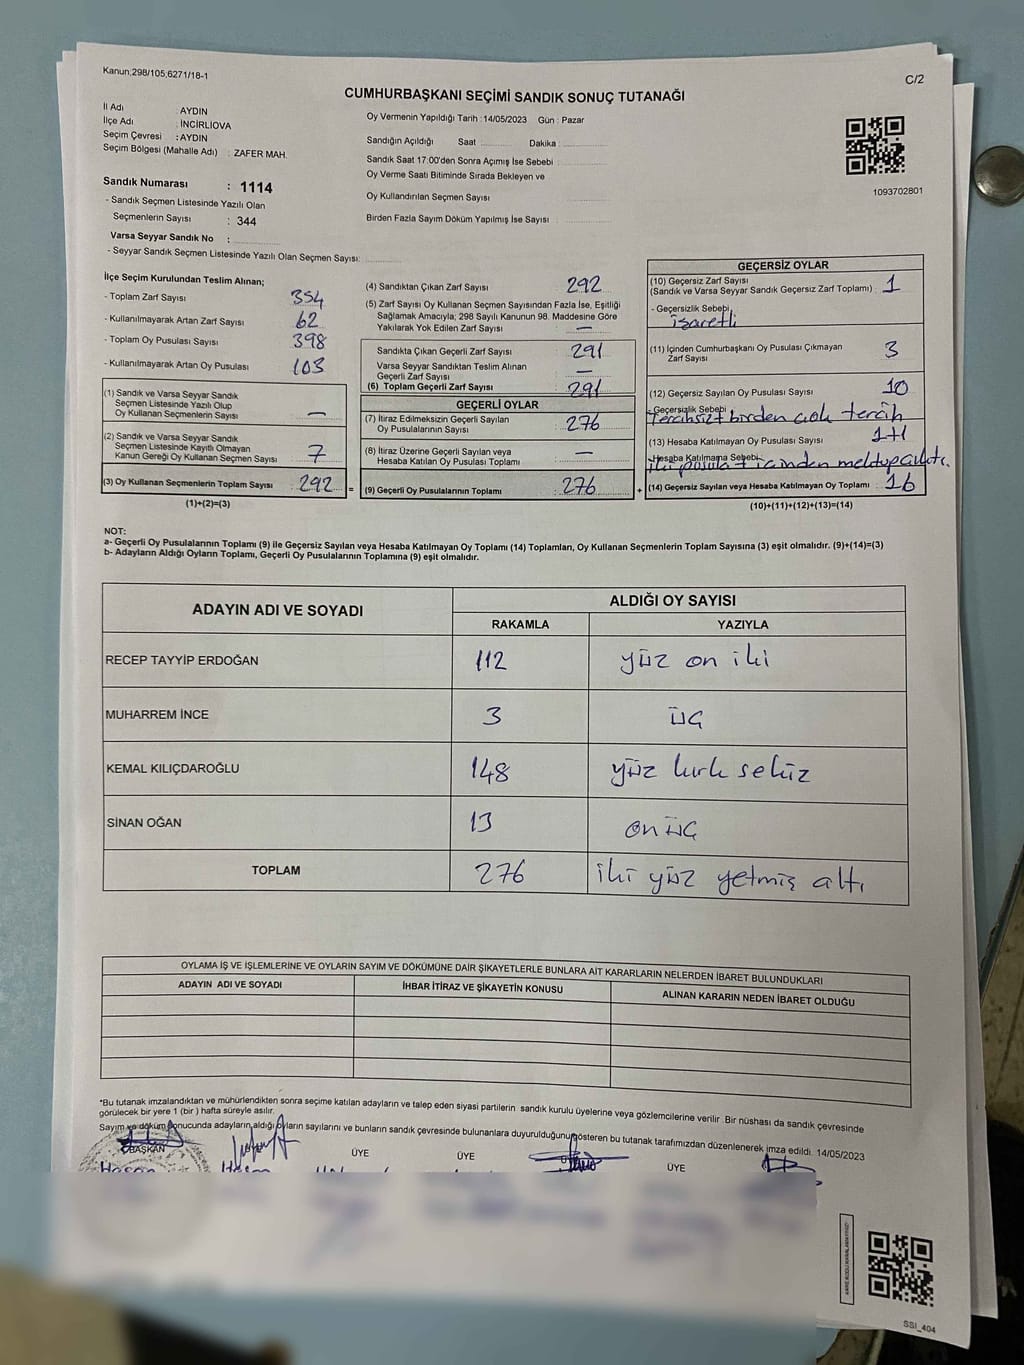 Kanun;298/105;6271/18-1
C/2
CUMHURBAŞKANI SEÇİMİ SANDIK SONUÇ TUTANAĞI
İl Adı : AYDIN
İlçe Adı : İNCİRLİOVA
Seçim Çevresi : AYDIN
Seçim Bölgesi (Mahalle Adı) : ZAFER MAH.
Sandık Numarası : 1114
- Sandık Seçmen Listesinde Yazılı Olan
Seçmenlerin Sayısı : 344
Varsa Seyyar Sandık No :
- Seyyar Sandık Seçmen Listesinde Yazılı Olan Seçmen Sayısı:
Oy Vermenin Yapıldığı Tarih :14/05/2023 Gün : Pazar
Sandığın Açıldığı Saat Dakika :
Sandık Saat 17:00'den Sonra Açımış İse Sebebi :
Oy Verme Saati Bitiminde Sırada Bekleyen ve
Oy Kullandırılan Seçmen Sayısı :
Birden Fazla Sayım Döküm Yapılmış İse Sayısı :
1093702801
İlçe Seçim Kurulundan Teslim Alınan;
- Toplam Zarf Sayısı 354
- Kullanılmayarak Artan Zarf Sayısı 62
- Toplam Oy Pusulası Sayısı 398
- Kullanılmayarak Artan Oy Pusulası 103
(1) Sandık ve Varsa Seyyar Sandık
Seçmen Listesinde Yazılı Olup
Oy Kullanan Seçmenlerin Sayısı : —
(2) Sandık ve Varsa Seyyar Sandık
Seçmen Listesinde Kayıtlı Olmayan
Kanun Gereği Oy Kullanan Seçmen Sayısı : 7
(3) Oy Kullanan Seçmenlerin Toplam Sayısı : 292 =
(1)+(2)=(3)
(4) Sandıktan Çıkan Zarf Sayısı : 292
(5) Zarf Sayısı Oy Kullanan Seçmen Sayısından Fazla İse, Eşitliği
Sağlamak Amacıyla; 298 Sayılı Kanunun 98. Maddesine Göre
Yakılarak Yok Edilen Zarf Sayısı : —
Sandıkta Çıkan Geçerli Zarf Sayısı : 291
Varsa Seyyar Sandıktan Teslim Alınan
Geçerli Zarf Sayısı : —
(6) Toplam Geçerli Zarf Sayısı : 291
GEÇERLİ OYLAR
(7) İtiraz Edilmeksizin Geçerli Sayılan
Oy Pusulalarının Sayısı : 276
(8) İtiraz Üzerine Geçerli Sayılan veya
Hesaba Katılan Oy Pusulası Toplamı : —
(9) Geçerli Oy Pusulalarının Toplamı : 276 +
GEÇERSİZ OYLAR
(10) Geçersiz Zarf Sayısı
(Sandık ve Varsa Seyyar Sandık Geçersiz Zarf Toplamı) : 1
- Geçersizlik Sebebi
işaretli
(11) İçinden Cumhurbaşkanı Oy Pusulası Çıkmayan
Zarf Sayısı : 3
(12) Geçersiz Sayılan Oy Pusulası Sayısı : 10
- Geçersizlik Sebebi
Tercihsizt birden çok tercih
(13) Hesaba Katılmayan Oy Pusulası Sayısı : 1+1
- Hesaba Katılmama Sebebi
iki pusula + içinden
(14) Geçersiz Sayılan veya Hesaba Katılmayan Oy Toplamı : 16
(10)+(11)+(12)+(13)=(14)
NOT:
a- Geçerli Oy Pusulalarının Toplamı (9) ile Geçersiz Sayılan veya Hesaba Katılmayan Oy Toplamı (14) Toplamları, Oy Kullanan Seçmenlerin Toplam Sayısına (3) eşit olmalıdır. (9)+(14)=(3)
b- Adayların Aldığı Oyların Toplamı, Geçerli Oy Pusulalarının Toplamına (9) eşit olmalıdır.
ADAYIN ADI VE SOYADI ALDIĞI OY SAYISI
RAKAMLA YAZIYLA
RECEP TAYYİP ERDOĞAN 112 yüz on iki
MUHARREM İNCE 3 üç
KEMAL KILIÇDAROĞLU 148 yüz kırk sekiz
SİNAN OĞAN 13 on üç
TOPLAM 276 iki yüz yetmiş altı
OYLAMA İŞ VE İŞLEMLERİNE VE OYLARIN SAYIM VE DÖKÜMÜNE DAİR ŞİKAYETLERLE BUNLARA AİT KARARLARIN NELERDEN İBARET BULUNDUKLARI
ADAYIN ADI VE SOYADI İHBAR İTİRAZ VE ŞİKAYETİN KONUSU ALINAN KARARIN NEDEN İBARET OLDUĞU
*Bu tutanak imzalandıktan ve mühürlendikten sonra seçime katılan adayların ve talep eden siyasi partilerin sandık kurulu üyelerine veya gözlemcilerine verilir. Bir nüshası da sandık çevresinde
görülecek bir yere 1 (bir ) hafta süreyle asılır.
Sayım ve döküm sonucunda adayların aldığı oyların sayılarını ve bunların sandık çevresinde bulunanlara duyurulduğunu gösteren bu tutanak tarafımızdan düzenlenerek imza edildi. 14/05/2023
BAŞKAN ÜYE ÜYE ÜYE
SSI_404